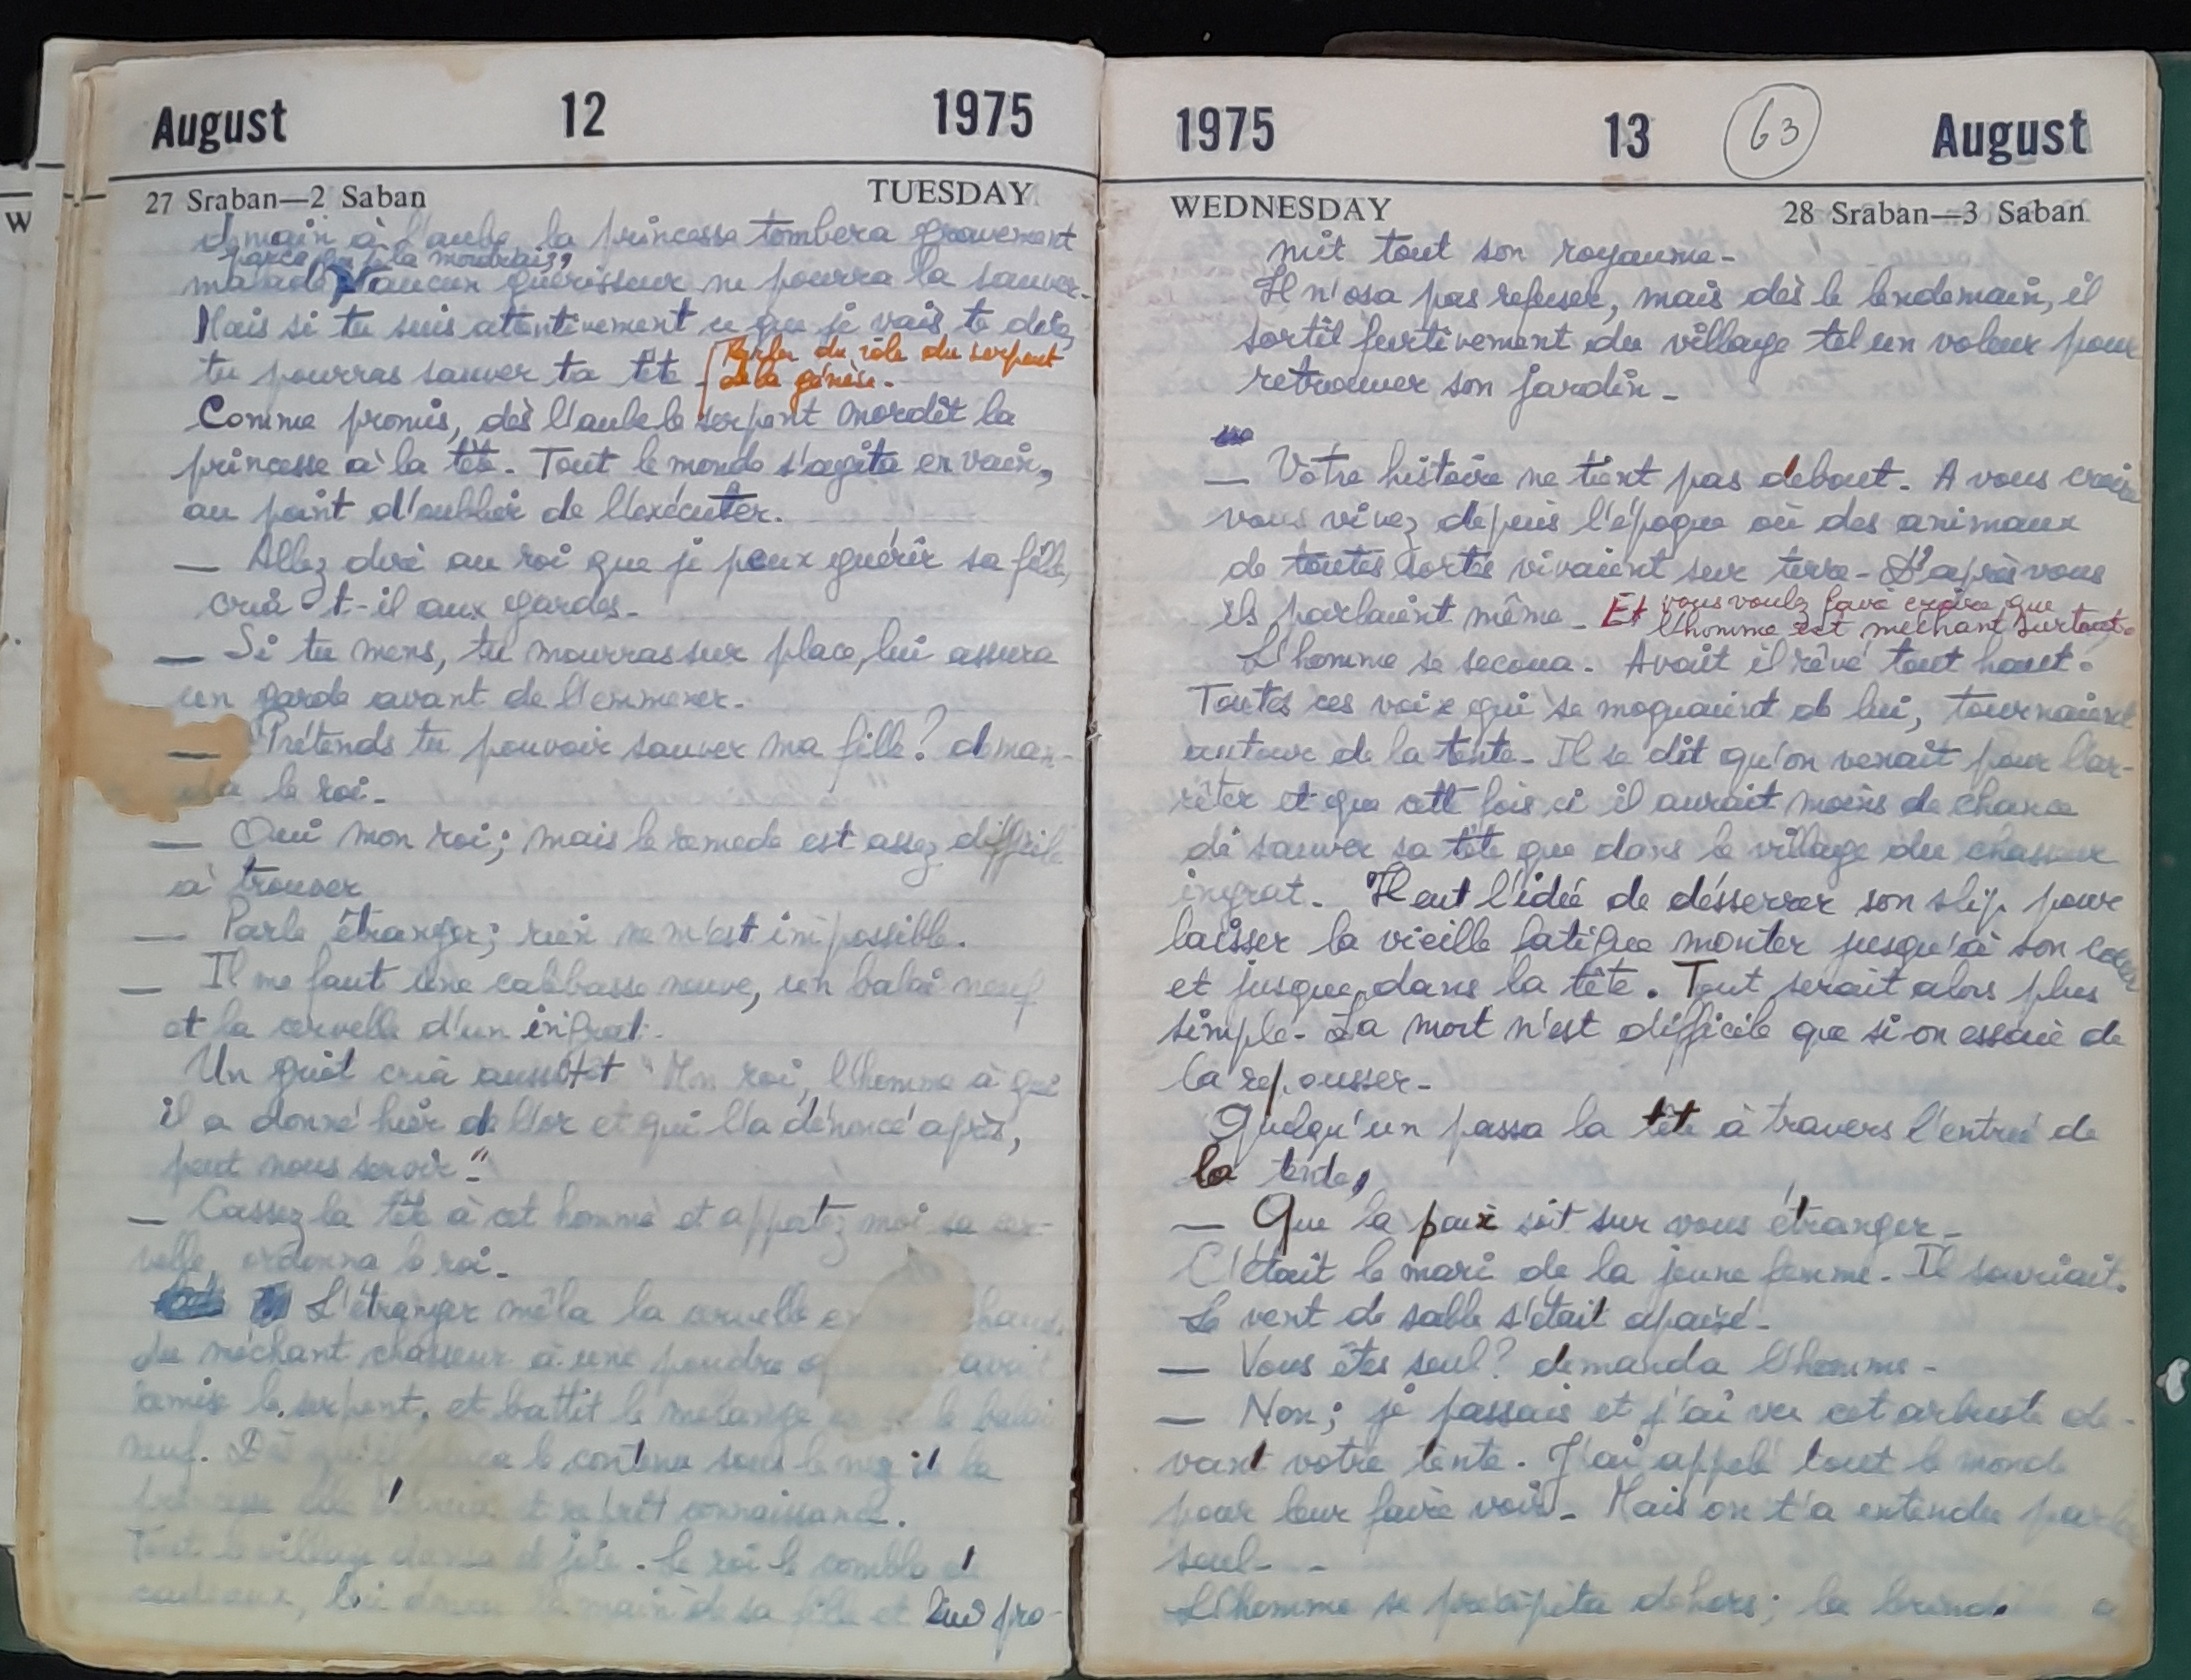 August 12 1975
27 Sraban—2 Saban TUESDAY
demain à l'aube, la princesse tombera gravement
parce que je la mordrai,
malade aucun guérisseur ne pourra la sauver.
Mais si tu suis attentivement ce que je vais te dire,
tu pourras sauver ta tête.
du rôle du serpent
de la génèse.
Comme promis, dès l'aube le serpent mordit la
princesse à la tête. Tout le monde s'agita en vain,
au point d'oublier de l'exécuter.
— Allez dire au roi que je peux guérir sa fille,
cria-t-il aux gardes.
— Si tu mens, tu mourras sur place, lui assura
un garde avant de l'emmener.
— Prétends tu pouvoir sauver ma fille? deman-
da le roi.
— Oui mon roi; mais le remede est assez difficile
à trouver
— Parle étranger; rien ne m'est impossible.
— Il me faut une calebasse neuve, un balai neuf
et la cervelle d'un ingrat.
Un griot cria aussitôt "Mon roi, l'homme à qui
il a donné hier de l'or et qui l'a dénoncé après,
peut nous servir".
— Cassez la tête à cet homme et apportez moi sa cer-
velle, ordonna le roi.
L'étranger mêla la cervelle
du méchant chasseur à une poudre avait
remise le serpent, et battit le mélange le balai
neuf. le contenu sous le nez de la
princesse elle et reprit connaissance.
Tout le village dansa de joie. Le roi le combla de
cadeaux, lui donna la main de sa fille et lui pro-
1975 13 63 August
WEDNESDAY 28 Sraban—3 Saban
mit tout son royaume.
Il n'osa pas refuser, mais dès le lendemain, il
sortit furtivement du village tel un voleur pour
retrouver son jardin.
— Votre histoire ne tient pas debout. A vous croire
vous vivez depuis l'époque où des animaux
de toutes sortes vivaient sur terre. D'après vous
ils parlaient même. Et vous voulez faire croire que
l'homme est méchant surtout.
L'homme se secoua. Avait il rêvé tout haut.
Toutes ces voix qui se moquaient de lui, tournaient
autour de la tente. Il se dit qu'on venait pour l'ar-
rêter et que cette fois ci il aurait moins de chance
de sauver sa tête que dans le village du chasseur
ingrat. Il eut l'idée de désserrer son slip pour
laisser la vieille fatigue monter jusqu'à son coeur
et jusque dans la tête. Tout serait alors plus
simple. La mort n'est difficile que si on essaie de
la repousser.
Quelqu'un passa la tête à travers l'entrée de
la tente,
— Que la paix soit sur vous étranger.
C'était le mari de la jeune femme. Il souriait.
Le vent de sable s'était apaisé.
— Vous êtes seul? demanda l'homme.
— Non; je passais et j'ai vu cet arbuste de-
vant votre tente. J'ai appelé tout le monde
pour leur faire voir. Mais on t'a entendu parler
seul...
L'homme se précipita dehors; la